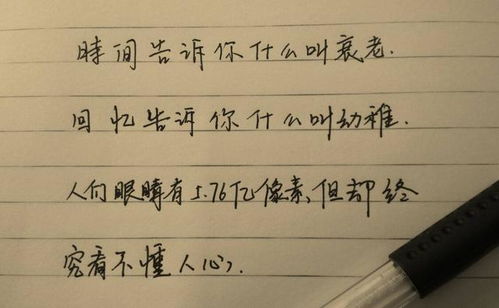 時间告诉你什么叫衰老.
回忆告诉你什么叫幼稚.
人们眼睛有5.76亿像素,但却终
究看不懂人心.